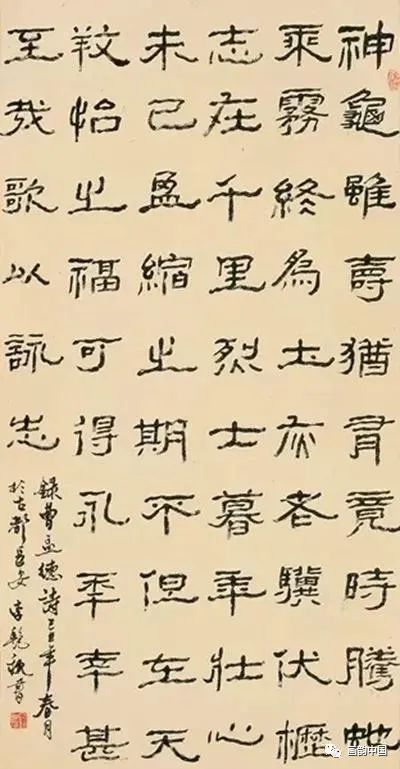 神龜雖壽猶有竟時騰虵
乘霧終為土灰老驥伏櫪
志在千里烈士暮年壯心
未已盈縮之期不但在天
養怡之福可得永年幸甚
至哉歌以詠志
錄曹孟德詩年春月
於古都長安李書
韵中国